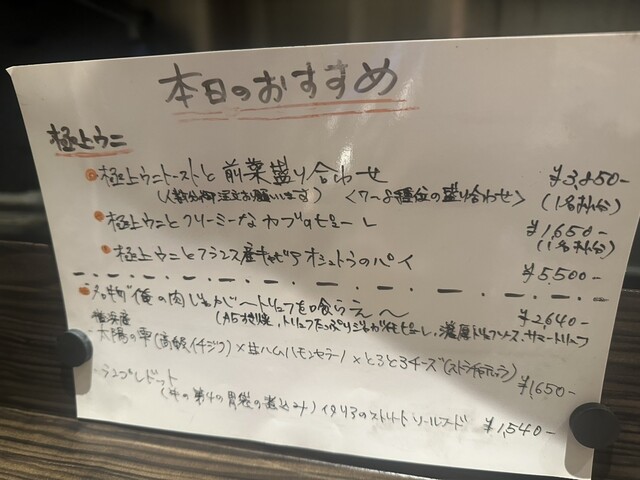 本日のおすすめ
極上ウニ
極上ウニトーストと前菜盛り合わせ ¥3,850-
(人数分御注文お願いします) <7〜8種位の盛り合わせ> (1名様分)
極上ウニとクリーミーなカブのピューレ ¥1,650-
(1名様分)
極上ウニとフランス産キャビア オシェトラのパイ ¥5,500-
名物!俺の肉じゃが〜トリュフを喰らえ〜 ¥2,640-
(A5すき焼, トリュフたっぷりじゃがいもピューレ, 濃厚トリュフソース, サマートリュフ
太陽の雫(高級イチジク)×生ハムハモンセラーノ×とろとろチーズ(ストラッチャテッラ) ¥1650-
ランプレドット
(牛の第4の胃袋の煮込み) イタリアのストリートソールフード ¥1,540-